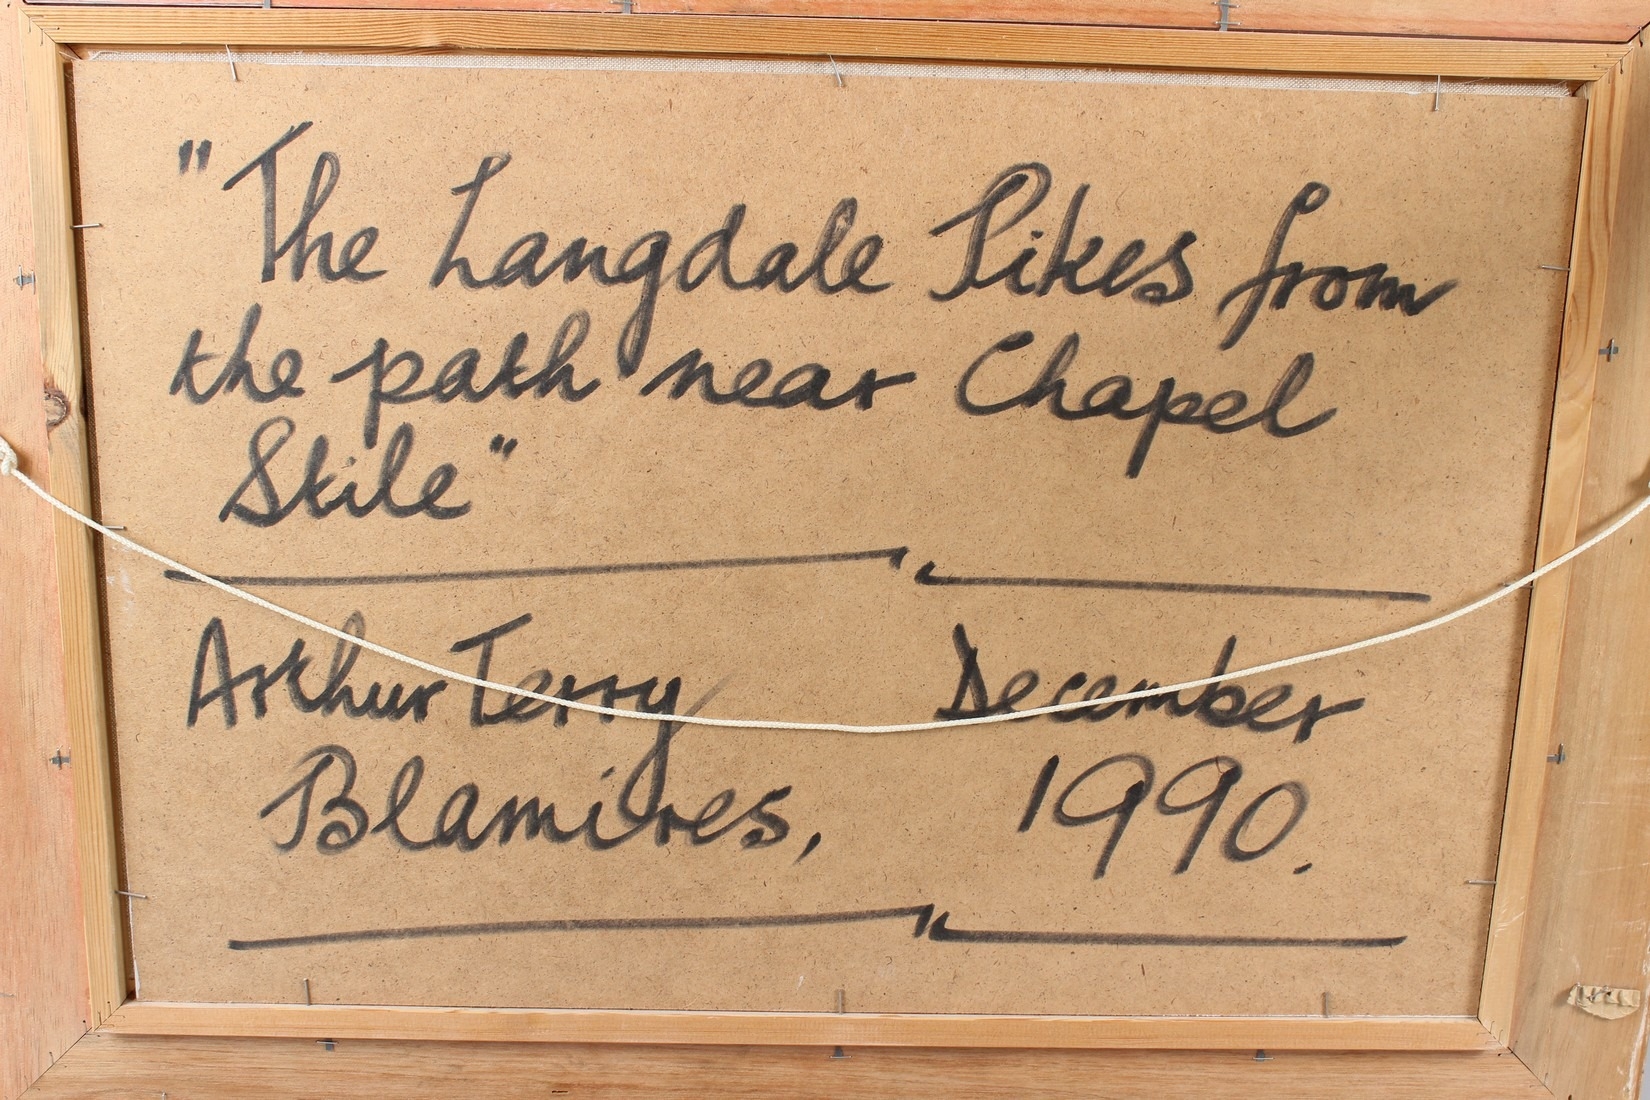 "The Langdale Pikes from
the path near Chapel
Stile"
Arthur Terry
Blamires,
December
1990.